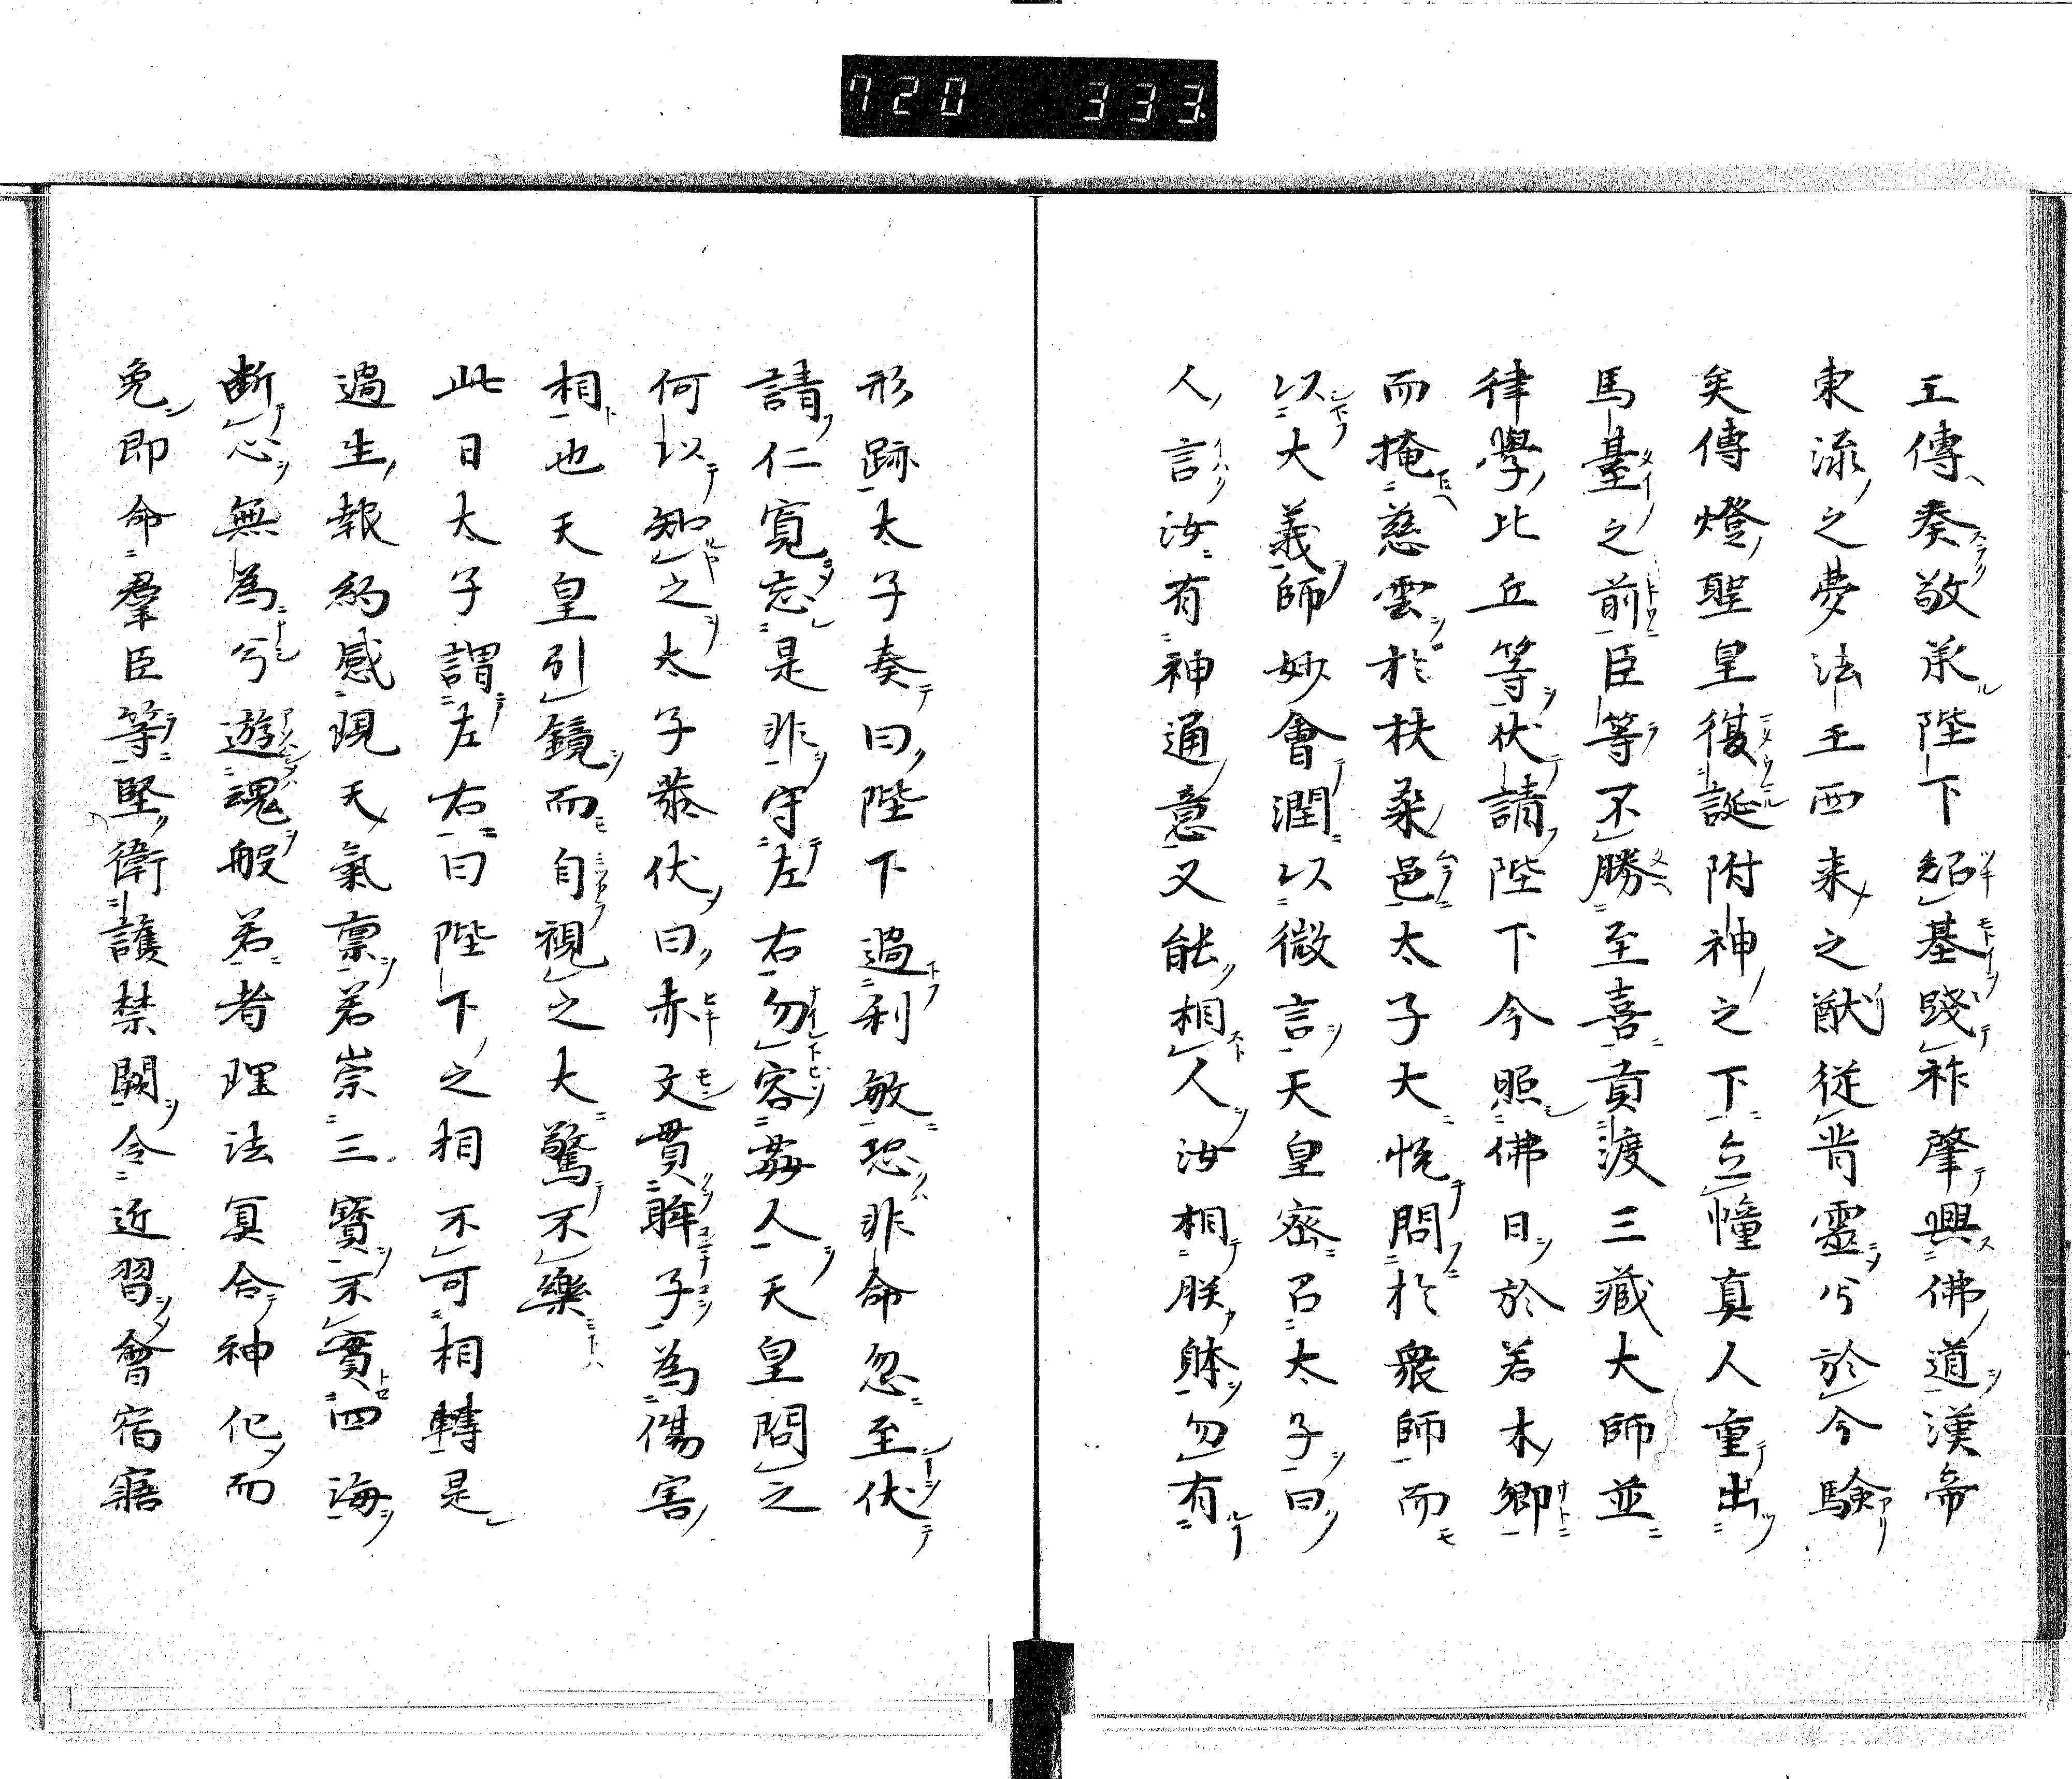 720 333
王傳奏敬承陛下紹基踐祚肇興佛道漢帝
東流之夢法王西来之猷従昔靈兮於今驗
矣傳燈聖皇復誕附神之下立幢真人重出
馬臺之前臣等不勝至喜貢渡三藏大師並
律學比丘等伏請陛下今照佛日於若木卿
而掩慈雲於扶桒邑太子大悦問於衆師而
以大義師妙會潤以微言天皇密召太子曰
人言汝有神通意又能相人汝相朕躰勿有
形跡太子奏曰陛下過利敏恐非命忽至伏
請仁寛忘是非守左右勿容姧人天皇問之
何以知之太子恭伏曰赤文貫眸子為傷害
相也天皇引鏡而自視之大驚不樂
此日太子謂左右曰陛下之相不可相轉是
過生報約感現天氣禀若崇三寶不實四海
断心無為兮遊魂般若者理法冥合神化而
免即命羣臣等堅衛護禁闕令近習會宿寤